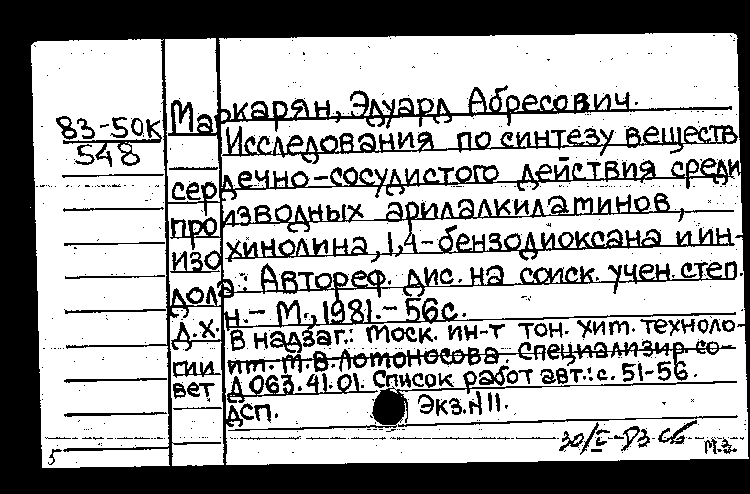 83-50К
548
Маркарян, Эдуард Абресович.
Исследования по синтезу веществ
сердечно-сосудистого действия среди
производных арилалкиламинов,
изохинолина, 1,4-бензодиоксана и ин-
дола: Автореф. дис. на соиск. учен. степ.
д.х.н. - М., 1981. - 56с.
В надзаг.: Моск. ин-т тон. хим. техноло-
гии им. М.В.Ломоносова. Специализир. со-
вет Д 063.41.01. Список работ авт.: с. 51-56.
ДСП. Экз.N11.
30/I-83 сб
М.З.
5